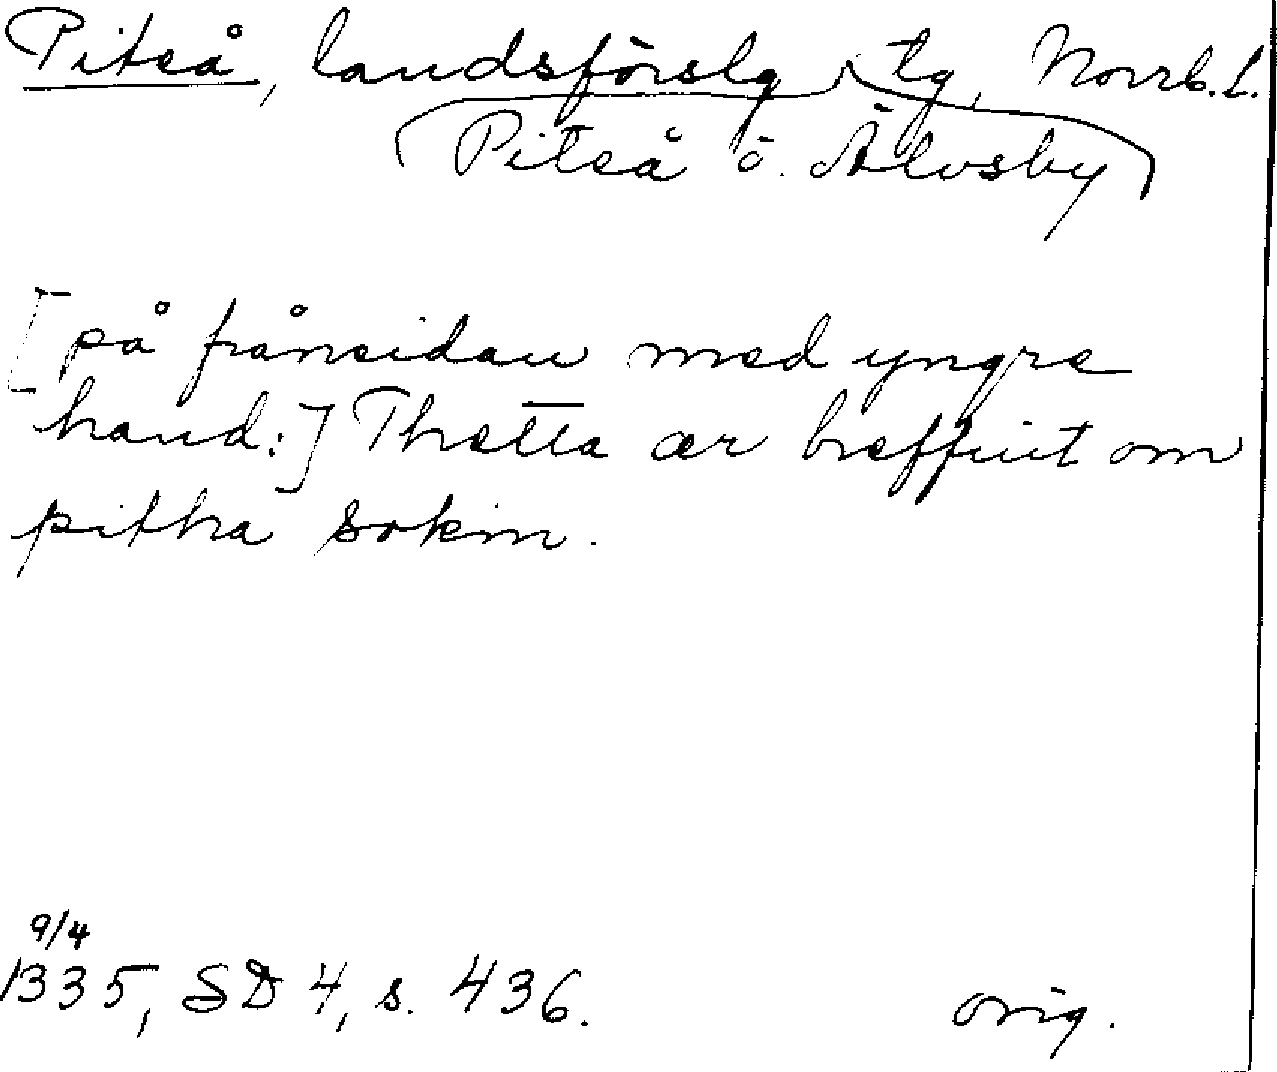 Piteå, landsförslg tg, Norrb. L.
Piteå o. Älvsby
[på frånsidan med yngre
hand:] Thetta ær breffuit om
pitha sokin.
9/4
1335, SD 4, s. 436.
orig.